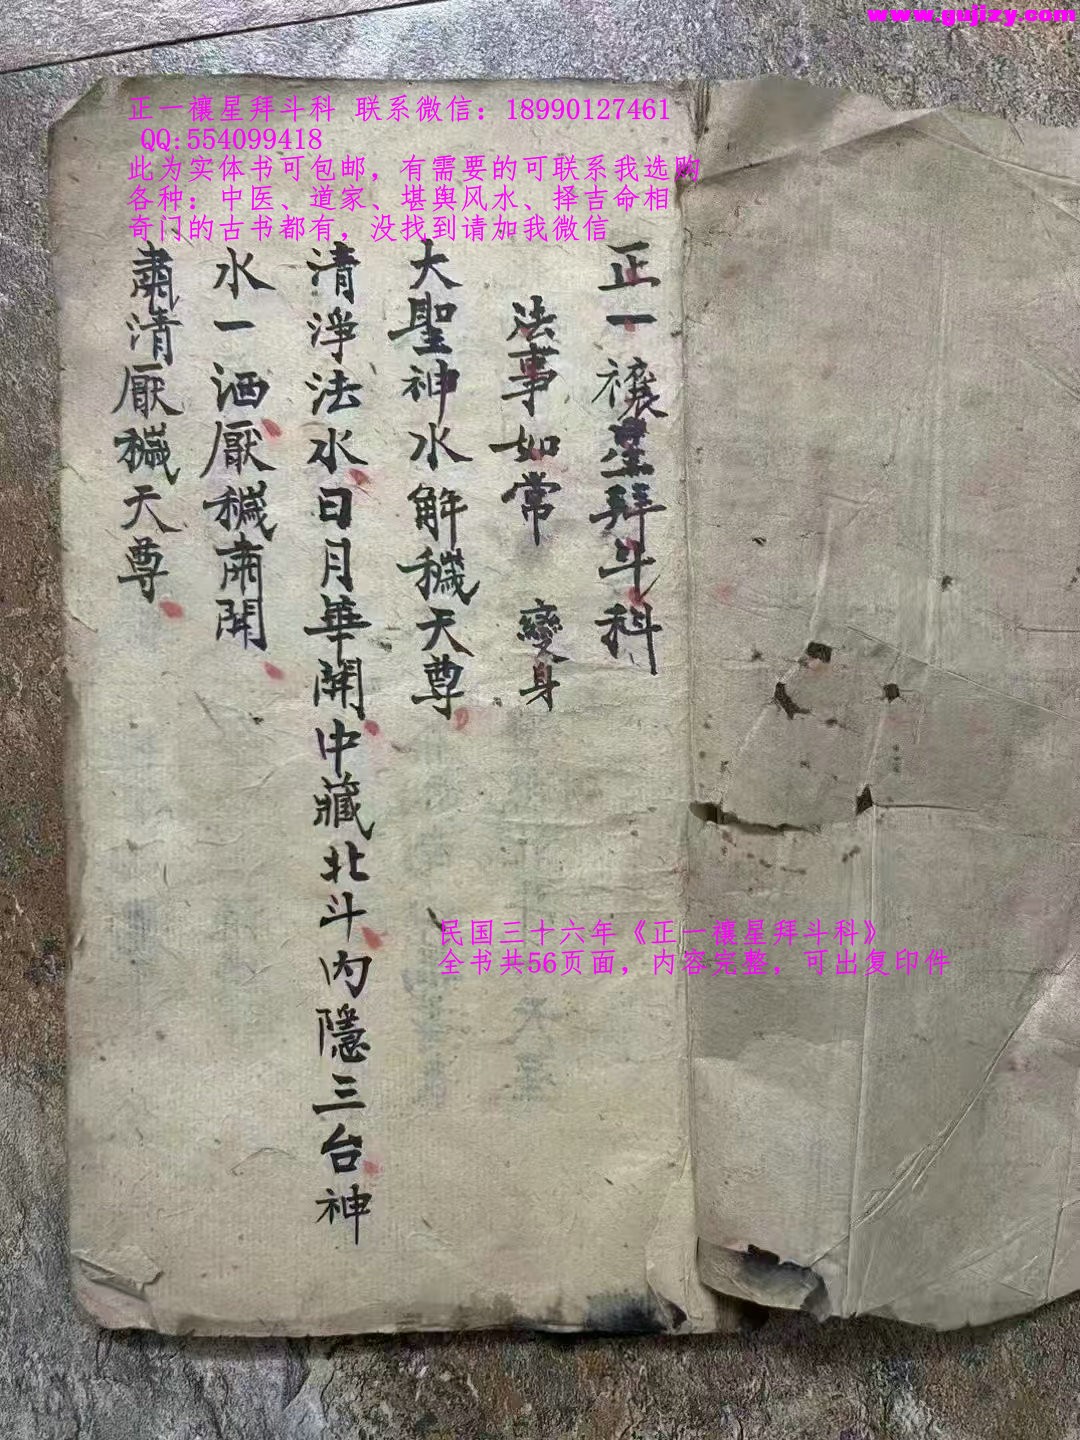 www.gujizy.com
正一禳星拜斗科 联系微信：18990127461
QQ:554099418
此为实体书可包邮，有需要的可联系我选购
各种：中医、道家、堪舆风水、择吉命相
奇门的古书都有，没找到请加我微信
正一禳星拜斗科
法事如常 變身
大聖神水解穢天尊
清淨法水日月華開中藏北斗內隱三台神
水一洒厭穢開
肅清厭穢天尊
民国三十六年《正一禳星拜斗科》
全书共56页面，内容完整，可出复印件